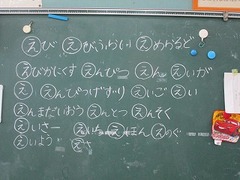 えび えびふらい えめらるど
えびかにくす えん えいが
え えんぴつけずり えいご えい
えんまだいおう えんとつ えんそく
えいさー えほん えのぐ
えいよう えさ